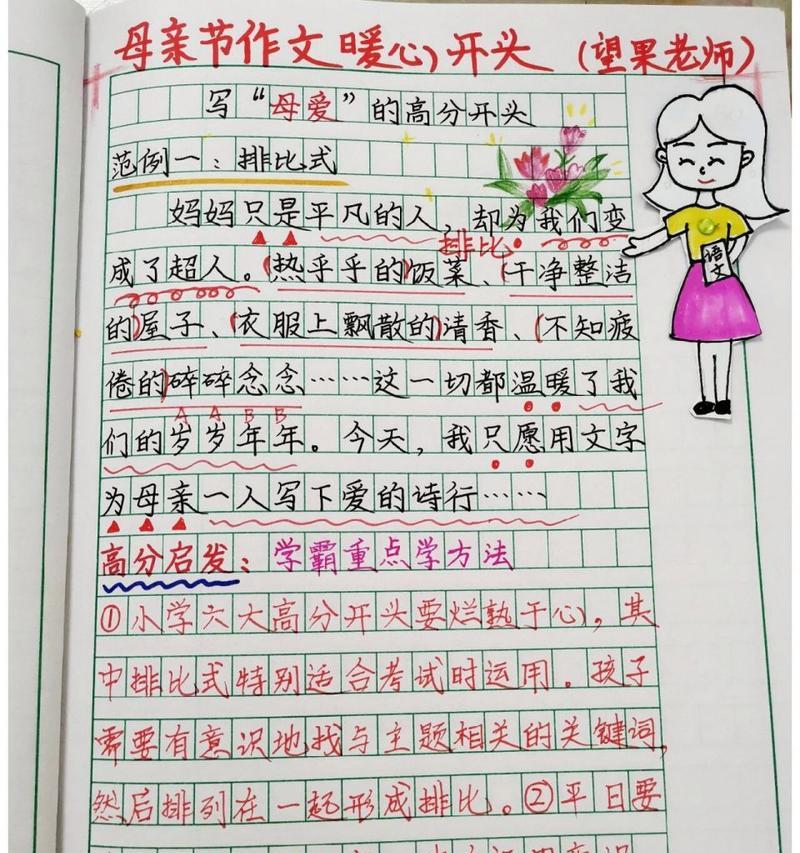 母亲节作文暖心开头（望果老师）
写“母爱”的高分开头
范例一：排比式
妈妈只是平凡的人，却为我们变
排比
成了超人。(热乎乎的)饭菜、(干净整洁
的)屋子、(衣服上飘散的)清香、(不知疲
倦的)碎碎念念……这一切都温暖了我
AABB
们的岁岁年年。今天，我只愿用文字
为母亲一人写下爱的诗行……
高分启发：学霸重点学方法
①小学六大高分开头要烂熟于心，其
中排比式特别适合考试时运用。孩子
需要有意识地找与主题相关的关键词，
然后排列在一起形成排比。②平日要
语文